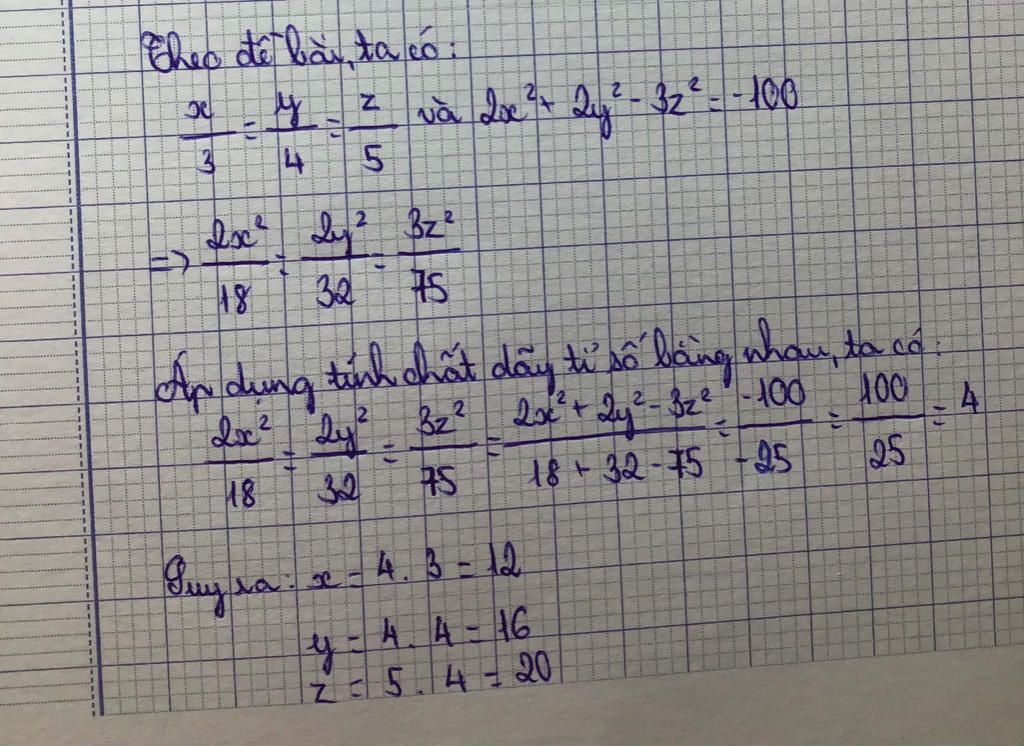 Theo đề bài, ta có:
x/3 = y/4 = z/5 và 2x² + 2y² - 3z² = -100
=> 2x²/18 = 2y²/32 = 3z²/75
Áp dụng tính chất dãy tỉ số bằng nhau, ta có:
2x²/18 = 2y²/32 = 3z²/75 = 2x² + 2y² - 3z²/18 + 32 - 75 = -100/-25 = 100/25 = 4
Suy ra: x = 4 . 3 = 12
y = 4 . 4 = 16
z = 5 . 4 = 20